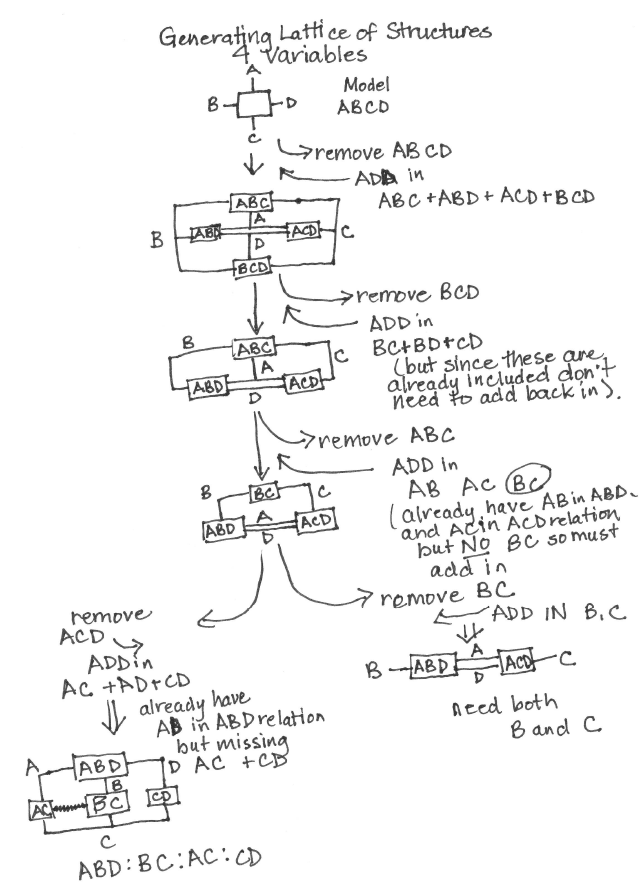 Generating Lattice of Structures
4 Variables
A
Model
B D
ABCD
C
remove ABCD
ADD in
ABC+ABD+ACD+BCD
ABC
A
B ABD ACD C
D
BCD
remove BCD
ADD in
BC+BD+CD
(but since these are
already included don't
need to add back in).
B ABC C
A
ABD ACD
D
remove ABC
ADD in
AB AC BC
(already have AB in ABD.
and AC in ACD relation
but NO BC so must
add in
B BC C
A
ABD ACD
D
remove BC
ADD IN B,C
A
B ABD ACD C
D
need both
B and C
remove
ACD
ADD in
AC +AD+CD
already have
AD in ABD relation
but missing
AC +CD
A ABD D
B
AC BC CD
C
ABD:BC:AC:CD